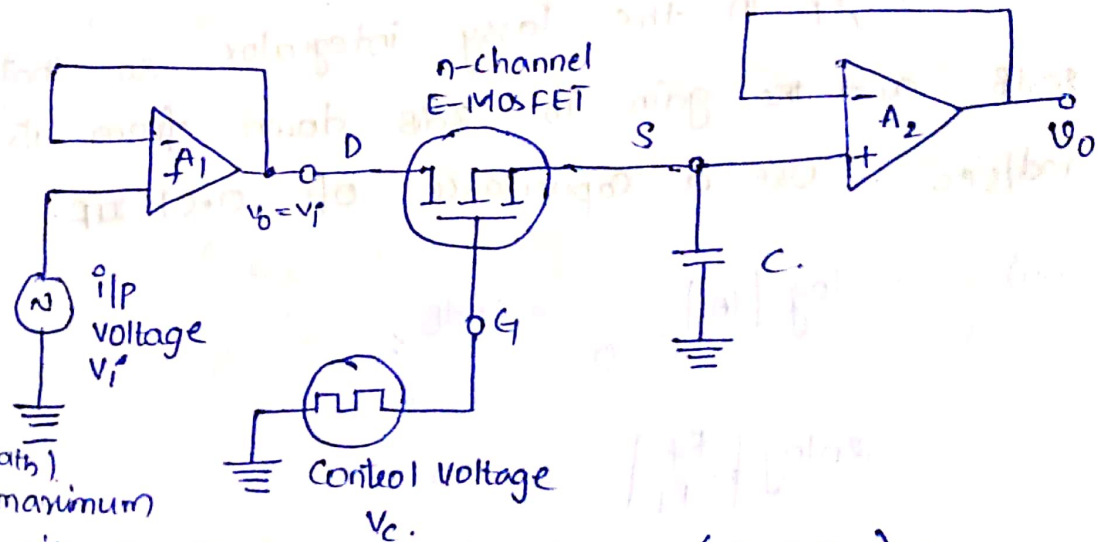 n-channel
E-MOSFET
A1
D
S
A2
V0
v0 = Vi
C.
i/p
voltage
Vi
G
Control voltage
Vc.
maximum